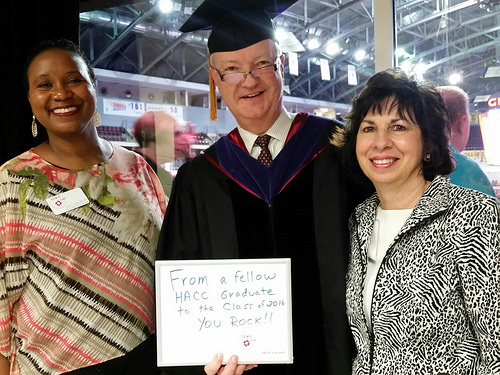 From a fellow
HACC Graduate
to the Class of 2014
You Rock!!